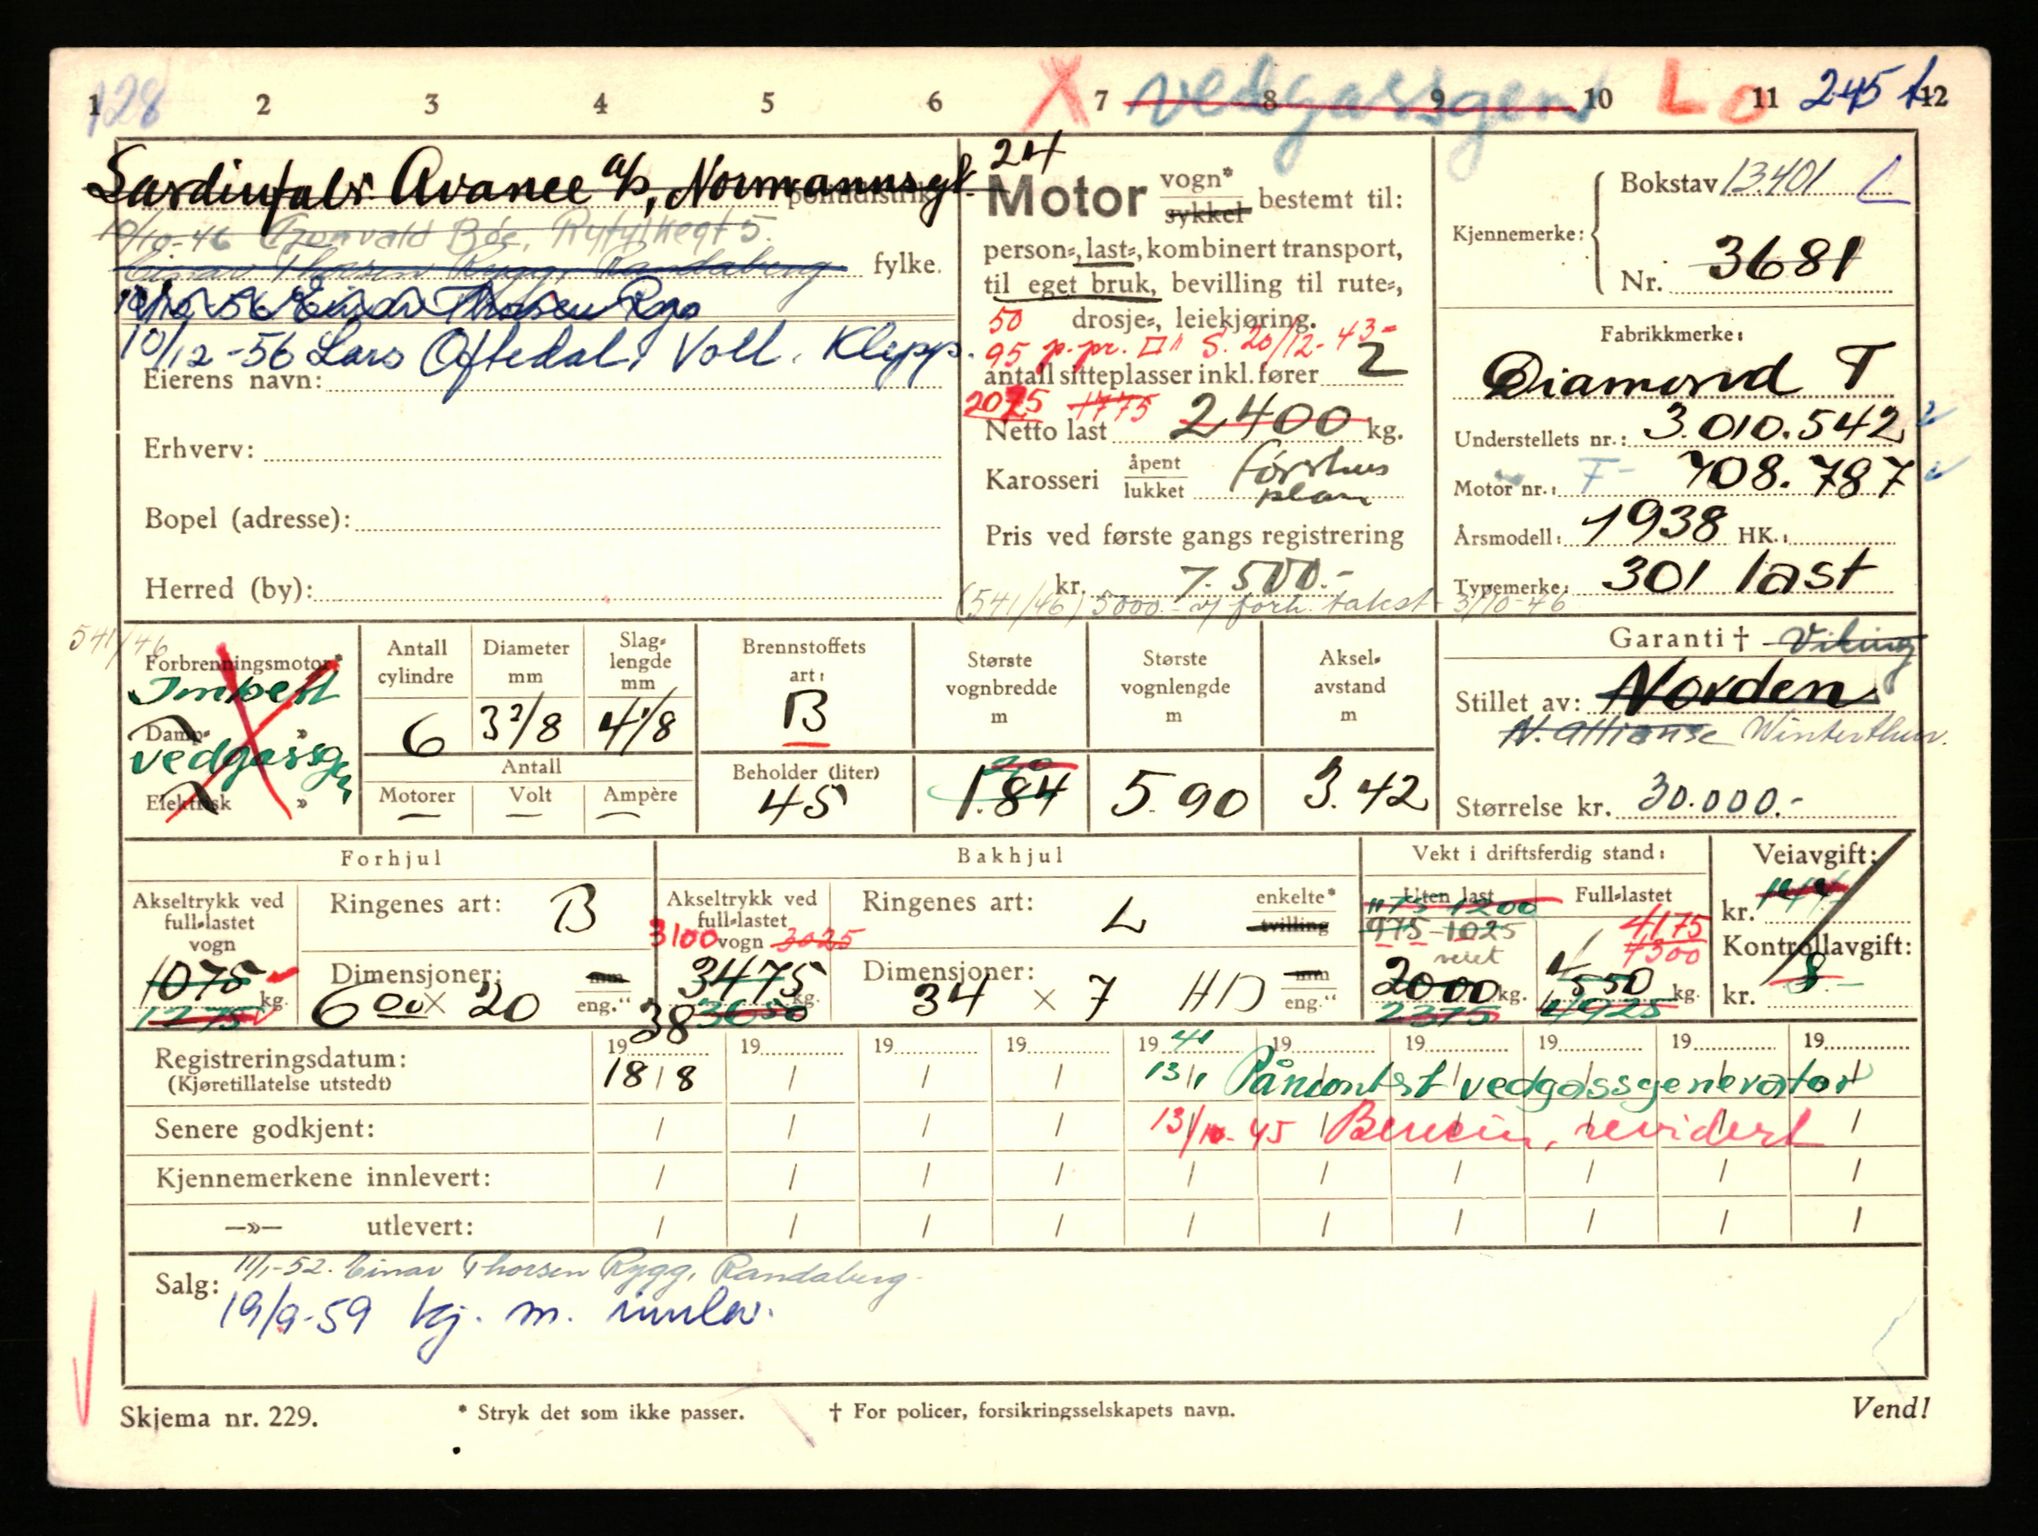 128
1 2 3 4 5 6 7 8 9 10 11 12
X vedgassgen L o 245 t
Sardinfabr. Avance a/s, Normannsgt. 24
politidistrikt
19/10-46 Tronvald Bøe, Ryfylkegt 5.
Einar Thorsen Rygg, Randaberg fylke.
10/12-56 Einar Thorsen Rygg
10/12-56 Lars Oftedal, Voll, Klepp.
Eierens navn:
Erhverv:
Bopel (adresse):
Herred (by):
Motor vogn* sykkel bestemt til:
person-, last-, kombinert transport,
til eget bruk, bevilling til rute-,
50 drosje-, leiekjøring.
95 p. pr. □" S. 20/12-43-
antall sitteplasser inkl. fører 2
2075 1775
Netto last 2400 kg.
Karosseri åpent lukket førerhus plan
Pris ved første gangs registrering
kr. 7.500.-
(541/46) 5000.- v/ forh. takst 3/10-46
Kjennemerke: Bokstav 13401
Nr. 3681
Fabrikkmerke:
Diamond T
Understellets nr.: 3.010.542
Motor nr.: F- 708.787
Årsmodell: 1938 HK.:
Typemerke: 301 last
541/46
Forbrenningsmotor*
Imbert
Damp- »
vedgassgen
Elektrisk »
Antall cylindre 6
Diameter mm 3 3/8
Slaglengde mm 4 1/8
Antall
Motorer — Volt — Ampère —
Brennstoffets art: B
Beholder (liter) 45
Største vognbredde m 1.84
Største vognlengde m 5.90
Akselavstand m 3.42
Garanti † Viking
Stillet av: Norden
N. Allianse Winterthur.
Størrelse kr. 30.000.-
Forhjul
Akseltrykk ved full-lastet vogn
1075 kg.
1275
Ringenes art: B
Dimensjoner: 6 00 x 20 mm eng."
Bakhjul
Akseltrykk ved full-lastet vogn
3100 3025
3475 kg.
3650
Ringenes art: L enkelte* tvilling
Dimensjoner: 34 x 7 HD mm eng."
Vekt i driftsferdig stand:
Uten last Full-lastet
1175 1200
975-1025
veiet
2000 kg.
2375
4175
4300
4550 kg.
4925
Veiavgift:
kr. 144
Kontrollavgift:
kr. 8-
19 38 19 19 19 19 41 19 19 19 19 19
Registreringsdatum: 18/8 13/1 Påmontert vedgassgenerator
(Kjøretillatelse utstedt)
Senere godkjent: 13/10-45 Bensin, revidert
Kjennemerkene innlevert:
—»— utlevert:
Salg: 11/1-52. Einar Thorsen Rygg, Randaberg.
19/9-59 kj. m. innlev.
Skjema nr. 229. * Stryk det som ikke passer. † For policer, forsikringsselskapets navn. Vend!